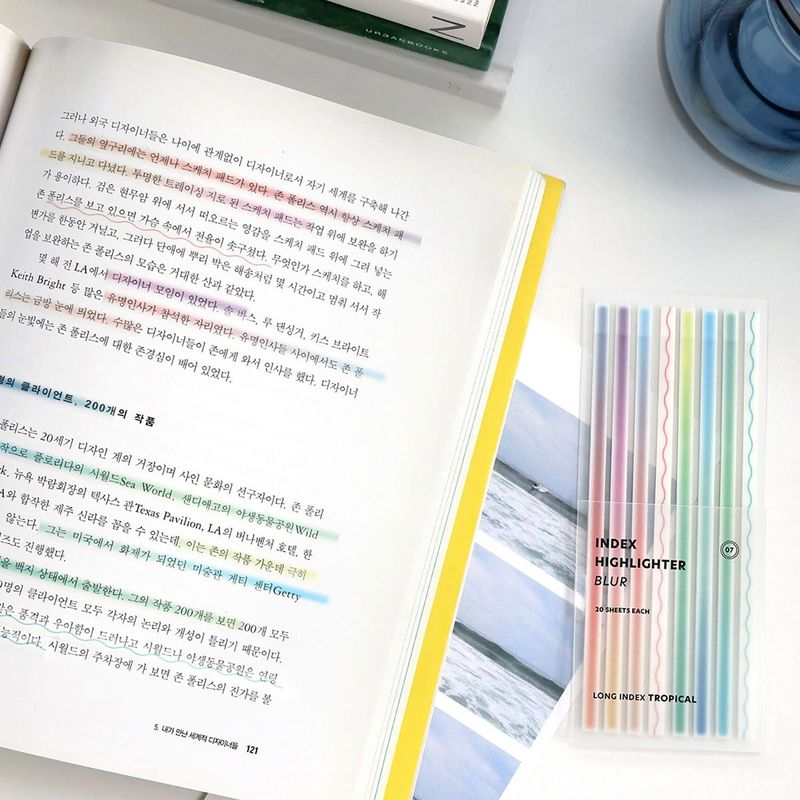 N
URBANBOOKS
그러나 외국 디자이너들은 나이에 관계없이 디자이너로서 자기 세계를 구축해 나간
다. 그들의 옆구리에는 언제나 스케치 패드가 있다. 존 폴리스 역시 항상 스케치 패
드를 지니고 다녔다. 투명한 트레이싱 지로 된 스케치 패드는 작업 위에 보완을 하기
가 용이하다. 검은 현무암 위에 서서 떠오르는 영감을 스케치 패드 위에 그려 넣는
존 폴리스를 보고 있으면 가슴 속에서 전율이 솟구쳤다. 무엇인가 스케치를 하고, 해
변가를 한동안 거닐고, 그러다 단애에 뿌리 박은 해송처럼 몇 시간이고 멈춰 서서 작
업을 보완하는 존 폴리스의 모습은 거대한 산과 같았다.
몇 해 전 LA에서 디자이너 모임이 있었다. 솔 바스, 루 댄싱거, 키스 브라이트
Keith Bright 등 많은 유명인사가 참석한 자리였다. 유명인사들 사이에서도 존 폴
리스는 금방 눈에 띄었다. 수많은 디자이너들이 존에게 와서 인사를 했다. 디자이너
들의 눈빛에는 존 폴리스에 대한 존경심이 배어 있었다.
클라이언트, 200개의 작품
폴리스는 20세기 디자인 계의 거장이며 사인 문화의 선구자이다. 존 폴리
작으로 플로리다의 시월드Sea World, 샌디에고의 야생동물공원Wild
뉴욕 박람회장의 텍사스 관Texas Pavilion, LA의 버나벤처 호텔, 한
합작한 제주 신라를 꼽을 수 있는데, 이는 존의 작품 가운데 극히
않는다. 그는 미국에서 화제가 되었던 미술관 게티 센터Getty
진행했다.
백지 상태에서 출발한다. 그의 작품 200개를 보면 200개 모두
클라이언트 모두 각자의 논리와 개성이 틀리기 때문이다.
품격과 우아함이 드러나고 시월드나 야생동물공원은 연령
시월드의 주차장에 가 보면 존 폴리스의 진가를 볼
5. 내가 만난 세계적 디자이너들 121
INDEX
HIGHLIGHTER
BLUR
07
20 SHEETS EACH
LONG INDEX TROPICAL